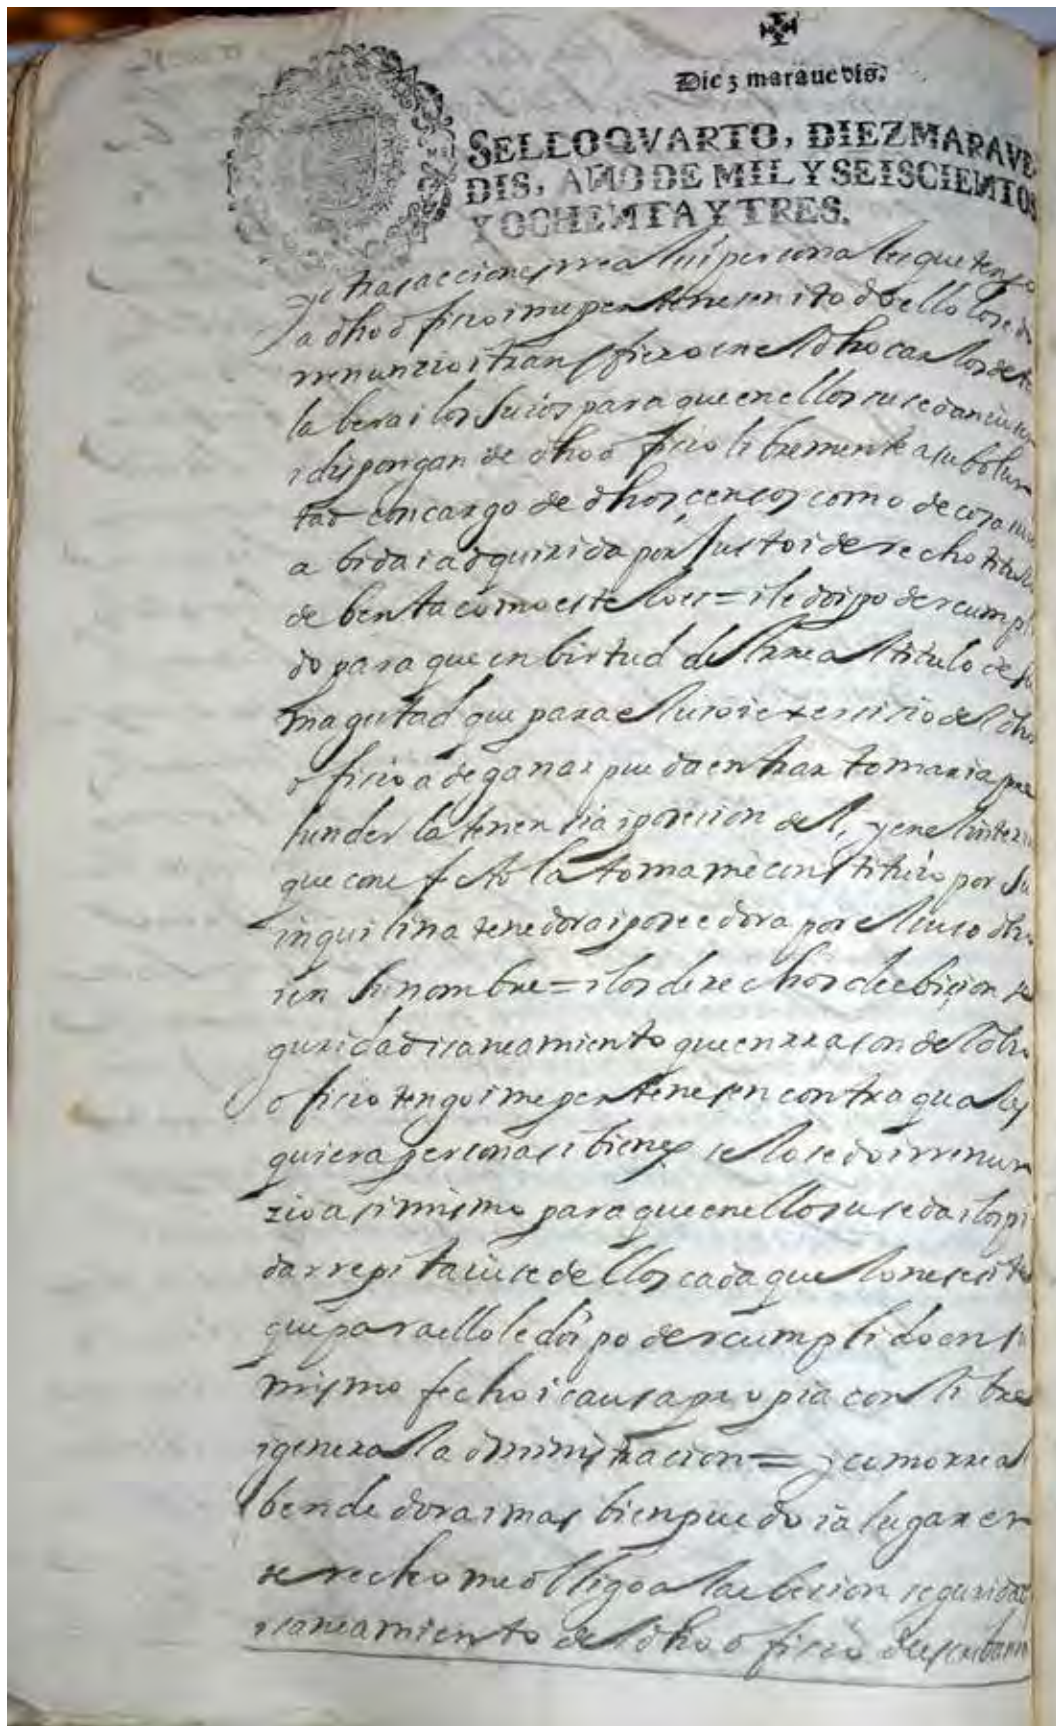 Diez marauedis.
SELLO QVARTO, DIEZ MARAVE-
DIS, AÑO DE MIL Y SEISCIENTOS
Y OCHENTA Y TRES.
yotras acciones rreales i personales que tengo
a dho ofisio i me pertenesen i todo ello lo sedo
rrenunzio i transfiero en el dho carlos de
labera i los suios para que en ellos susedan
i dispongan de dho ofisio libremente a su bolun
tad con cargo de dhos censos como de cosa
abida i adquirida por justo i derecho titulo
de benta como este lo es = i le doi poder cumpli
do para que en birtud del rreal titulo de su
magestad que para el uso i exersisio del dho
ofisio a de ganar pueda entrar tomar i apre
hender la tenensia i posesion del, y en el interin
que con efecto la toma me constituio por su
inquilina tenedora i poseedora por el suso dho
i en su nombre = i los derechos de ebision se
guridad i saneamiento que en rrason del dho
ofisio tengo i me pertenesen contra quales
quiera personas i bienes se lo sedo i rrenun
zio asi mismo para que en ellos suseda i los pi
da rrepita i use de ellos cada que lo nesesite
que para ello le doi poder cumplido en su
mismo fecho i causa propia con libre
i general administracion = y como rreal
bendedora i mas bien puedo i a lugar en
derecho me obligo a la ebision seguridad
i saneamiento del dho ofisio de escribano